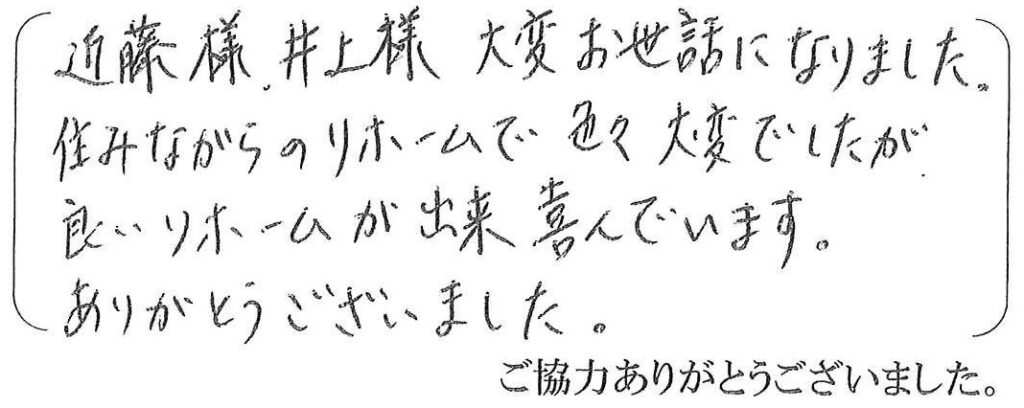 近藤様、井上様 大変お世話になりました。
住みながらのリホームで 色々 大変でしたが
良いリホームが出来 喜んでいます。
ありがとうございました。
ご協力ありがとうございました。